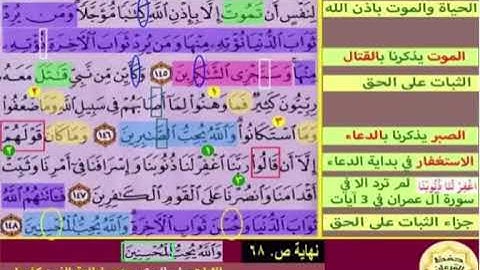 لِنَفْسٍ أَن تَمُوتَ إِلَّا بِإِذْنِ اللَّهِ كِتَابًا مُّؤَجَّلًا وَمَن يُرِدْ
ثَوَابَ الدُّنْيَا نُؤْتِهِ مِنْهَا وَمَن يُرِدْ ثَوَابَ الْآخِرَةِ نُؤْتِهِ
مِنْهَا وَسَنَجْزِي الشَّاكِرِينَ ١٤٥ وَكَأَيِّن مِّن نَّبِيٍّ قَاتَلَ مَعَهُ
رِبِّيُّونَ كَثِيرٌ فَمَا وَهَنُوا لِمَا أَصَابَهُمْ فِي سَبِيلِ اللَّهِ وَمَا ضَعُفُوا
وَمَا اسْتَكَانُوا وَاللَّهُ يُحِبُّ الصَّابِرِينَ ١٤٦ وَمَا كَانَ قَوْلَهُمْ
إِلَّا أَن قَالُوا رَبَّنَا اغْفِرْ لَنَا ذُنُوبَنَا وَإِسْرَافَنَا فِي أَمْرِنَا وَثَبِّتْ
أَقْدَامَنَا وَانصُرْنَا عَلَى الْقَوْمِ الْكَافِرِينَ ١٤٧ فَآتَاهُمُ اللَّهُ
ثَوَابَ الدُّنْيَا وَحُسْنَ ثَوَابِ الْآخِرَةِ وَاللَّهُ يُحِبُّ الْمُحْسِنِينَ ١٤٨
الحياة والموت باذن الله
الموت يذكرنا بالقتال
الثبات على الحق
الصبر يذكرنا بالدعاء
الاستغفار في بداية الدعاء
اغْفِرْ لَنَا ذُنُوبَنَا لم ترد الا في
سورة آل عمران في 3 آيات
جزاء الثبات على الحق
نهاية ص. ٦٨ وَاللَّهُ يُحِبُّ الْمُحْسِنِينَ